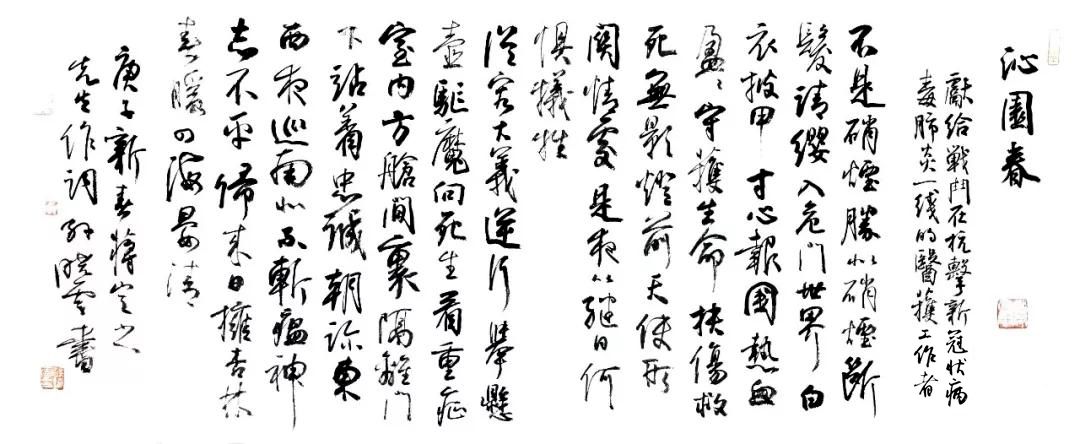 沁園春
獻給戰鬥在抗擊新冠狀病
毒肺炎一线的醫護工作者
不是硝煙勝似硝煙断
髮請纓入危門世界白
衣披甲寸心報國熱血
盈盈守護生命扶傷救
死無影燈前天使形
関情處是夜以繼日何
惧犧牲
從容大義逆行舉懸
壺驅魔向死生看重症
室内方艙間裏隔離門
下站着忠誠朝診東
西夜巡南北不斬瘟神
志不平歸來日擁杏林
春暖四海晏清
庚子新春蔣定之
先生作詞孫曉雲書